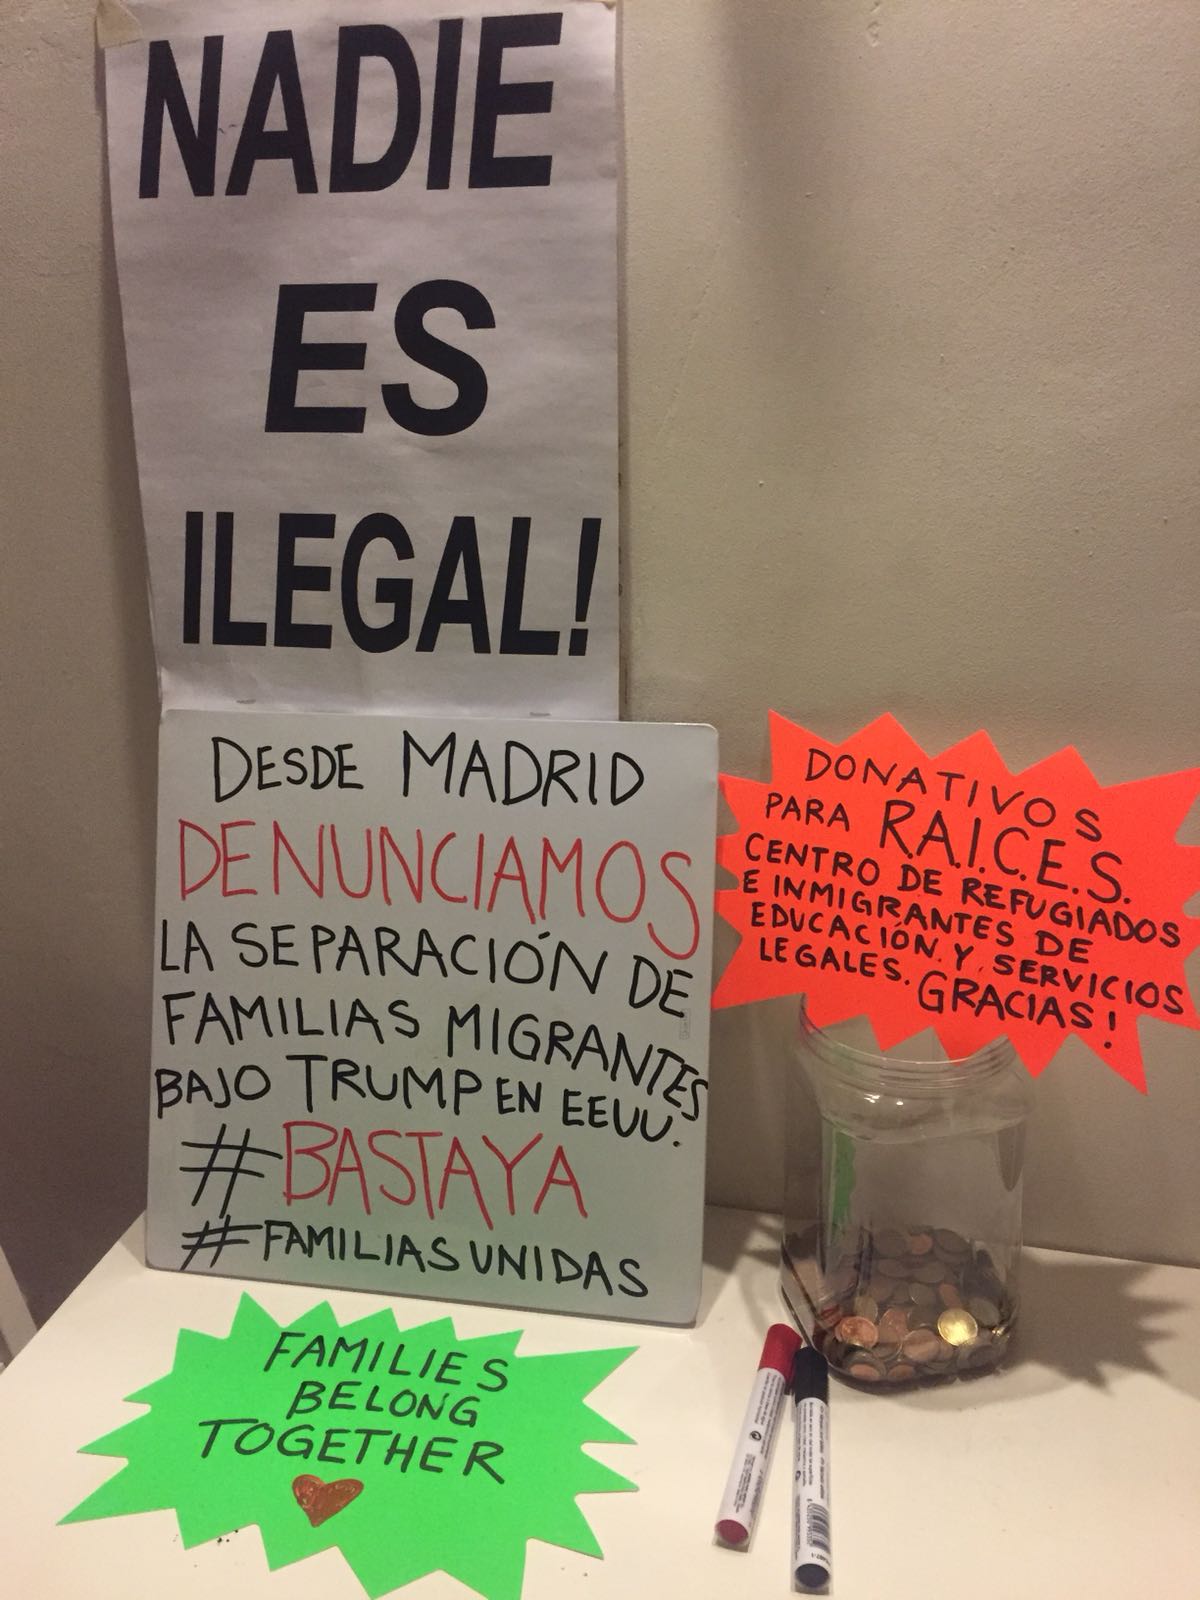 NADIE
ES
ILEGAL!
DESDE MADRID
DENUNCIAMOS
LA SEPARACIÓN DE
FAMILIAS MIGRANTES
BAJO TRUMP EN EEUU.
#BASTAYA
#FAMILIASUNIDAS
DONATIVOS
PARA R.A.I.C.E.S.
CENTRO DE REFUGIADOS
E INMIGRANTES DE
EDUCACIÓN Y SERVICIOS
LEGALES. GRACIAS!
FAMILIES
BELONG
TOGETHER